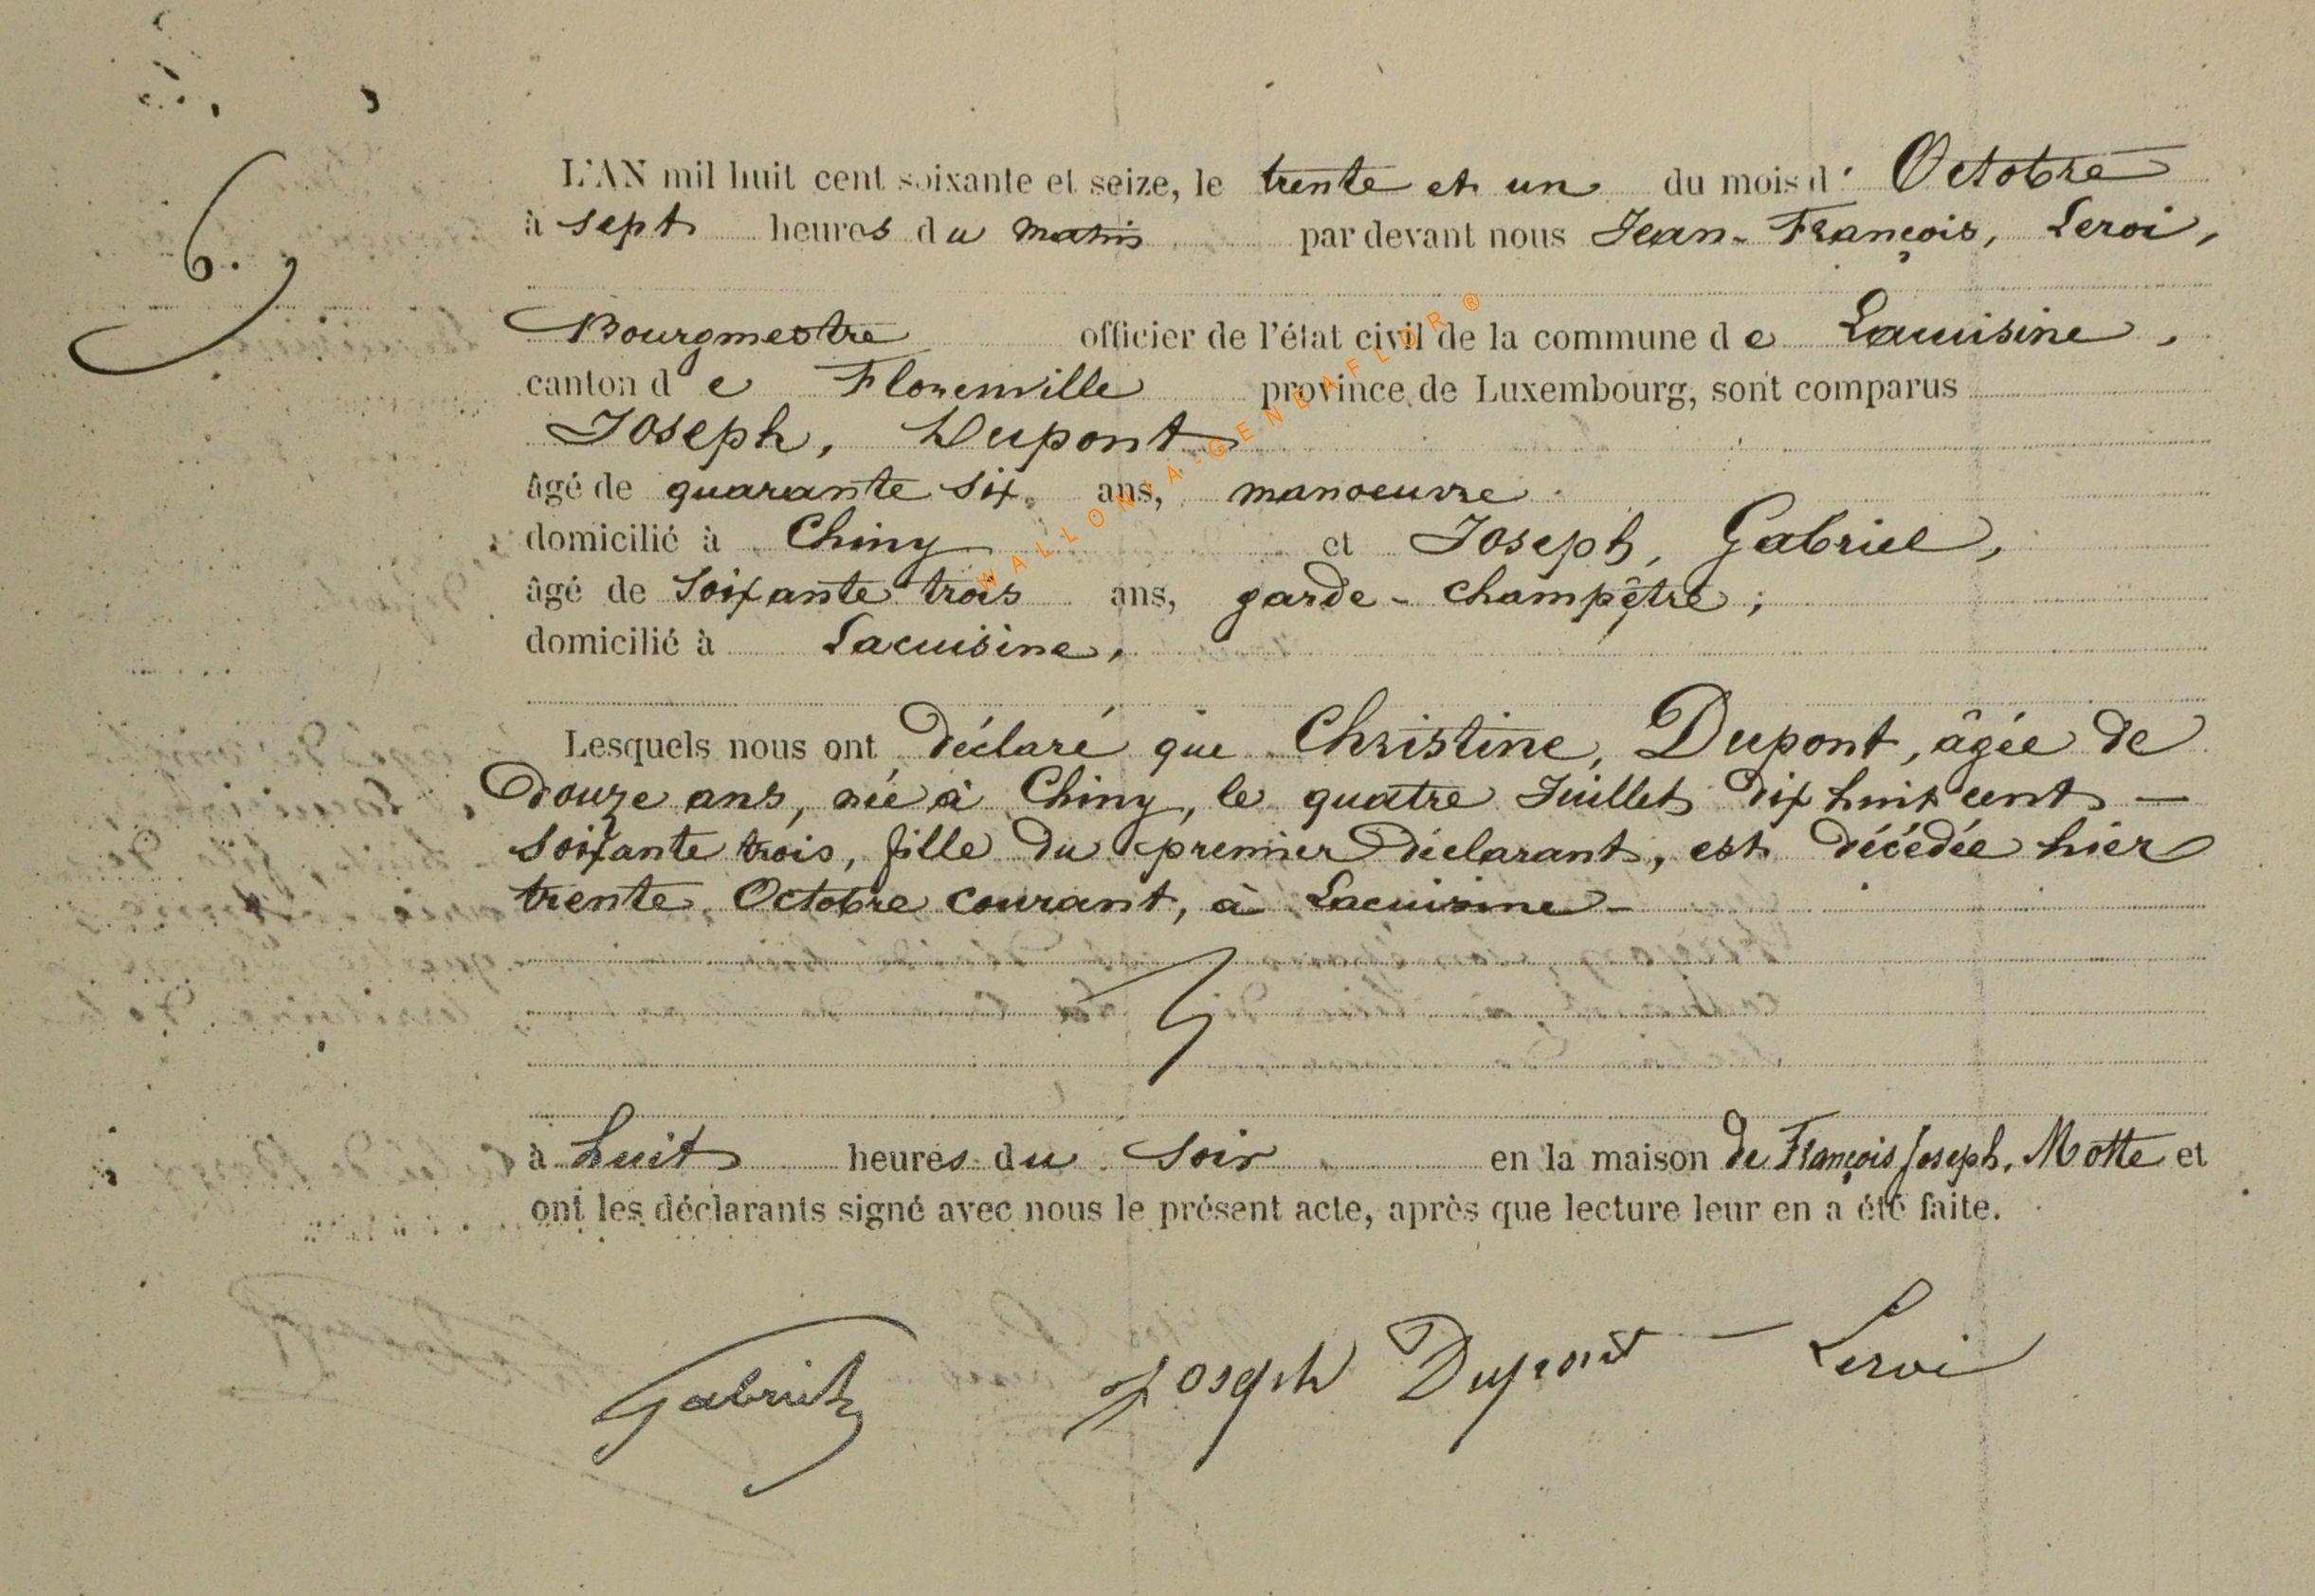 6.
L'AN mil huit cent soixante et seize, le trente et un du mois d' Octobre
à sept heures du matin par devant nous Jean-François, Leroi,
Bourgmestre officier de l'état civil de la commune de Lacuisine,
canton de Florenville province de Luxembourg, sont comparus
Joseph, Dupont
âgé de quarante six ans, manoeuvre
domicilié à Chiny et Joseph, Gabriel,
âgé de soixante trois ans, garde-champêtre;
domicilié à Lacuisine,
Lesquels nous ont déclaré que Christine, Dupont, âgée de
douze ans, née à Chiny, le quatre Juillet dix huit cent —
soixante trois, fille du premier déclarant, est décédée hier
trente Octobre courant, à Lacuisine —
à huit heures du soir en la maison de François Joseph, Motte et
ont les déclarants signé avec nous le présent acte, après que lecture leur en a été faite.
Gabriel Joseph Dupont — Leroi
WALLONIA-GENEAFLOR®